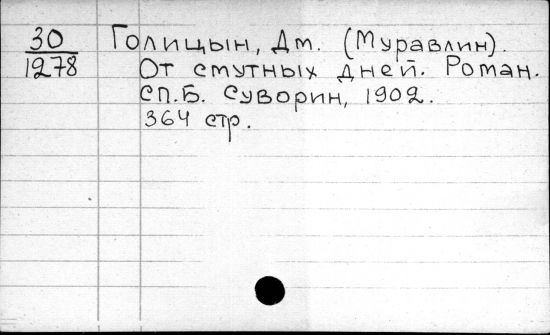 30 Голицын, Дм. (Муравлин).
1278 От смутных дней. Роман.
СП.Б. Суворин, 1902.
364 стр.